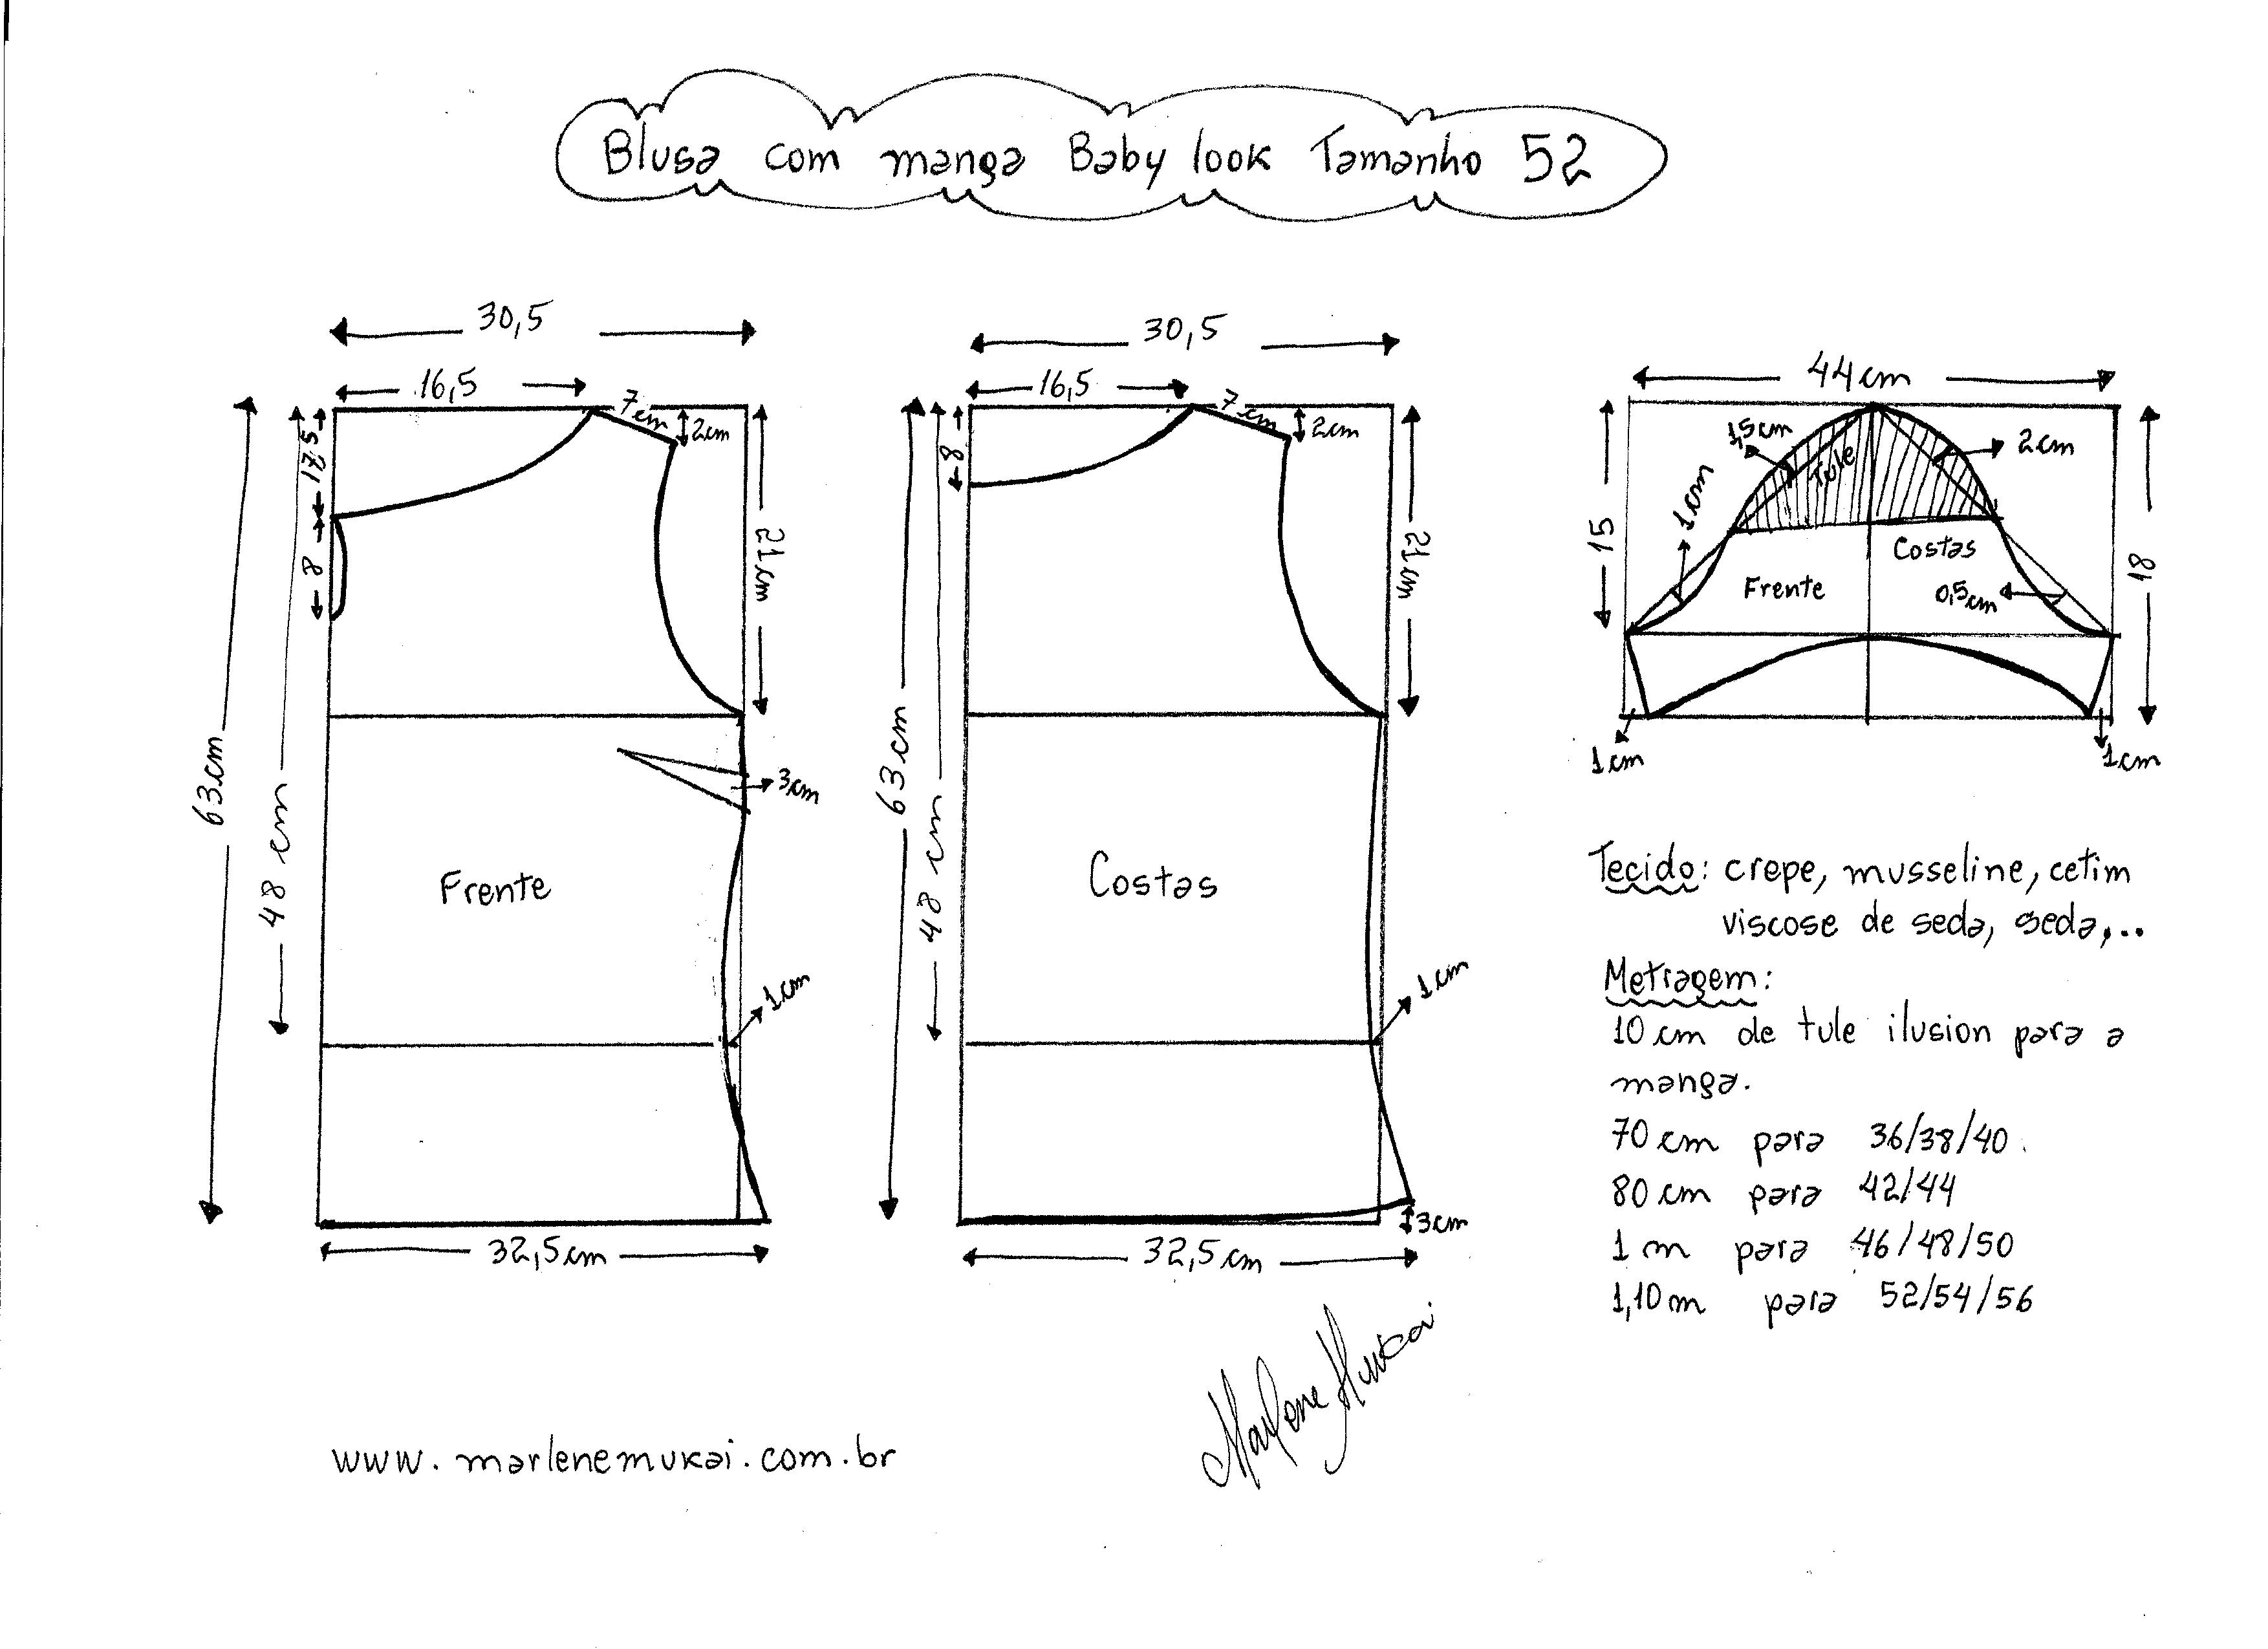 Blusa com manga Baby look Tamanho 52
30,5
16,5
7cm
2cm
17,5
8
21cm
63cm
48 cm
3cm
Frente
1cm
32,5cm
30,5
16,5
7cm
2cm
8
21cm
63cm
48 cm
Costas
1cm
3cm
32,5cm
44cm
1,5cm
Tule
2cm
1cm
15
Costas
18
Frente
0,5cm
1cm
1cm
Tecido: crepe, musseline, cetim
viscose de seda, seda,...
Metragem:
10 cm de tule ilusion para a
manga.
70 cm para 36/38/40.
80 cm para 42/44
1 m para 46/48/50
1,10m para 52/54/56
Marlene Mukai
www.marlenemukai.com.br